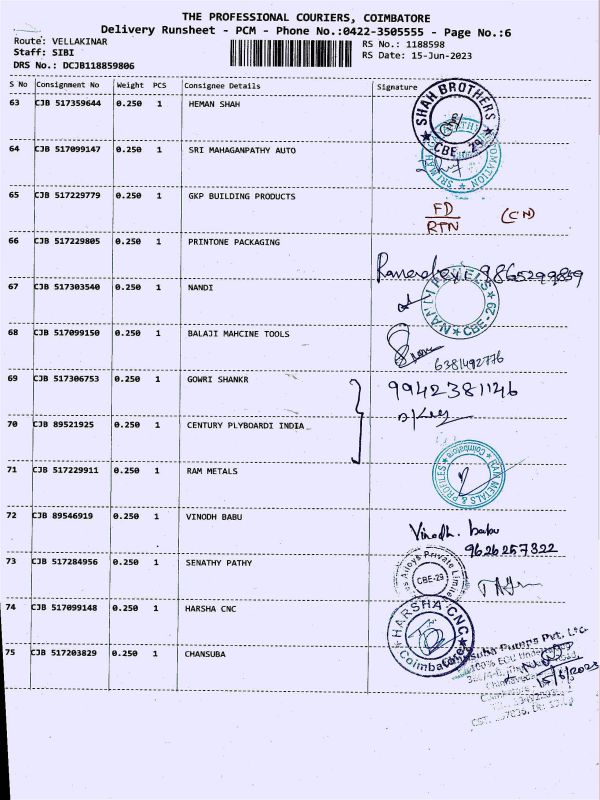 THE PROFESSIONAL COURIERS, COIMBATORE
Delivery Runsheet - PCM - Phone No.:0422-3505555 - Page No.:6
Route: VELLAKINAR
RS No.: 1188598
Staff: SIBI
RS Date: 15-Jun-2023
DRS No.: DCJB118859806
S No Consignment No Weight PCS Consignee Details Signature
63 CJB 517359644 0.250 1 HEMAN SHAH
SHAH BROTHERS
CBE - 29
64 CJB 517099147 0.250 1 SRI MAHAGANPATHY AUTO
65 CJB 517229779 0.250 1 GKP BUILDING PRODUCTS
FD (CN)
RTN
66 CJB 517229805 0.250 1 PRINTONE PACKAGING
9865299859
67 CJB 517303540 0.250 1 NANDI
CBE - 29
68 CJB 517099150 0.250 1 BALAJI MAHCINE TOOLS
6381492776
69 CJB 517306753 0.250 1 GOWRI SHANKR
9942381146
70 CJB 89521925 0.250 1 CENTURY PLYBOARDI INDIA
71 CJB 517229911 0.250 1 RAM METALS
RAM METALS & PROFILES
Coimbatore
72 CJB 89546919 0.250 1 VINODH BABU
Vinodh. babu
9626257322
73 CJB 517284956 0.250 1 SENATHY PATHY
Alloys Private Limited
CBE-29
74 CJB 517099148 0.250 1 HARSHA CNC
HARSHA CNC
Coimbatore
75 CJB 517203829 0.250 1 CHANSUBA
Chansuba Pumps Pvt. Ltd
100% EOU
15/6/2023